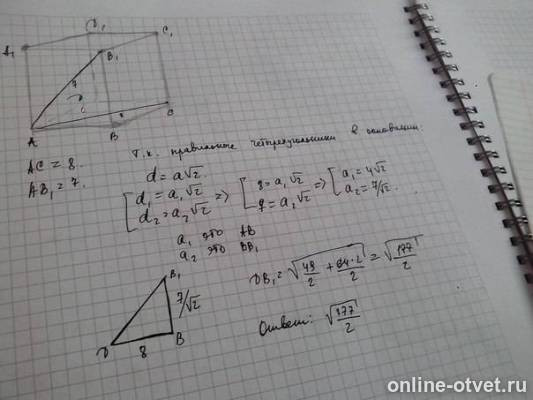 D₁
C₁
A₁
B₁
7
D
C
A
B
AC = 8.
AB₁ = 7.
Т.к. правильные четырехугольники в основании:
d = a√2
[ d₁ = a₁√2
d₂ = a₂√2 => [ 8 = a₁√2
7 = a₂√2 => [ a₁ = 4√2
a₂ = 7/√2.
a₁ это AB
a₂ это BB₁
B₁
7/√2
D
8
B
DB₁ = √(49/2 + 64·2/2) = √(177/2)
Ответ: √(177/2)
online-otvet.ru